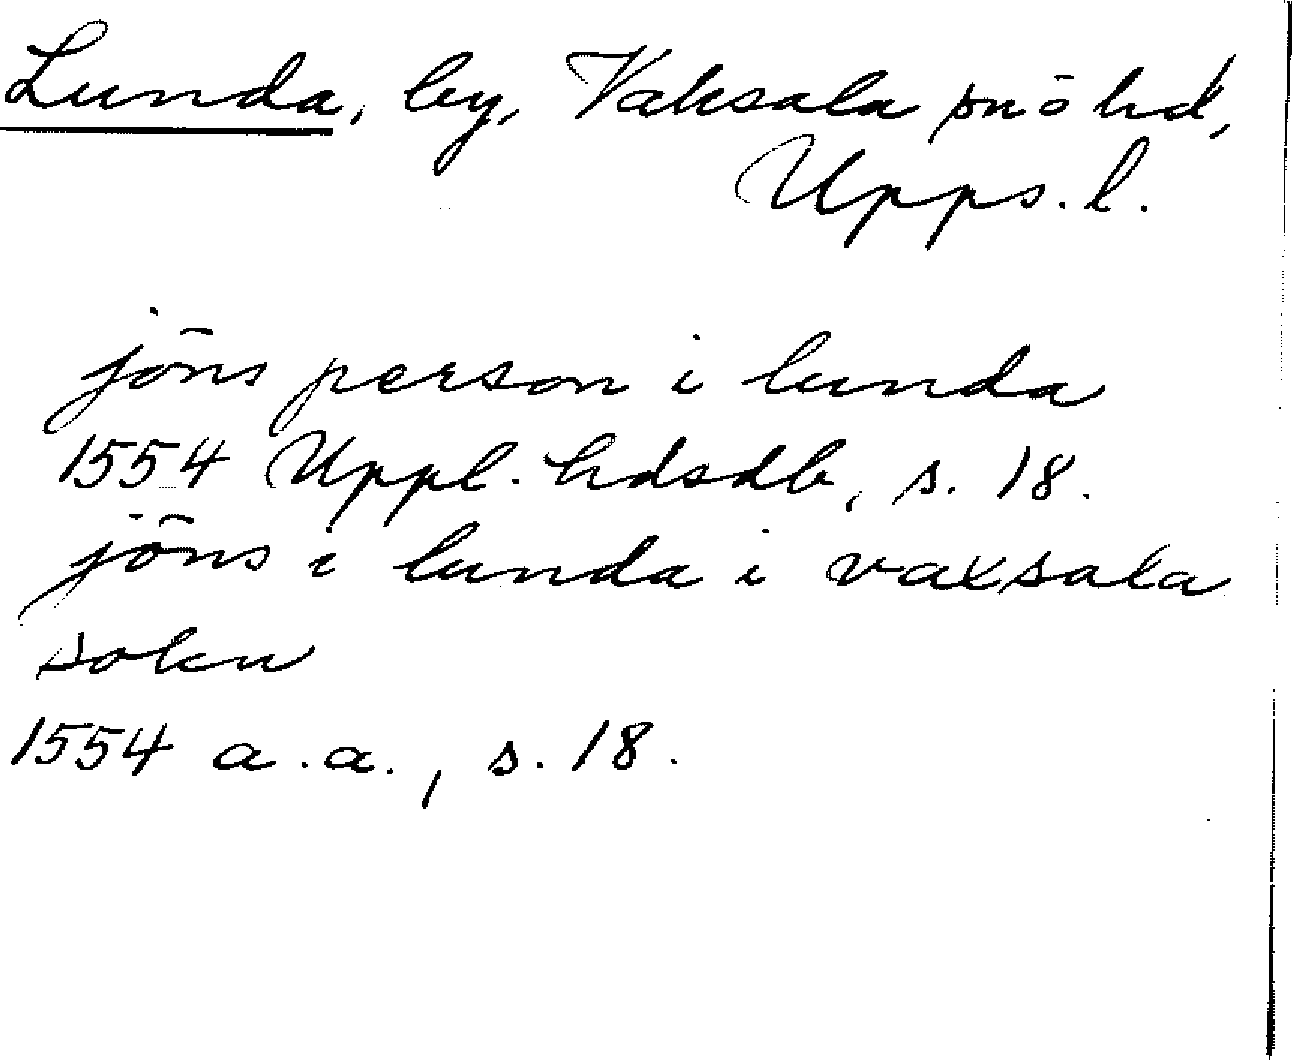 Lunda, by, Vaksala sn ō hd,
Upps. l.
jöns person i lunda
1554 Uppl. hdsdb, s. 18.
jöns i lunda i vaxsala
sokn
1554 a.a., s. 18.